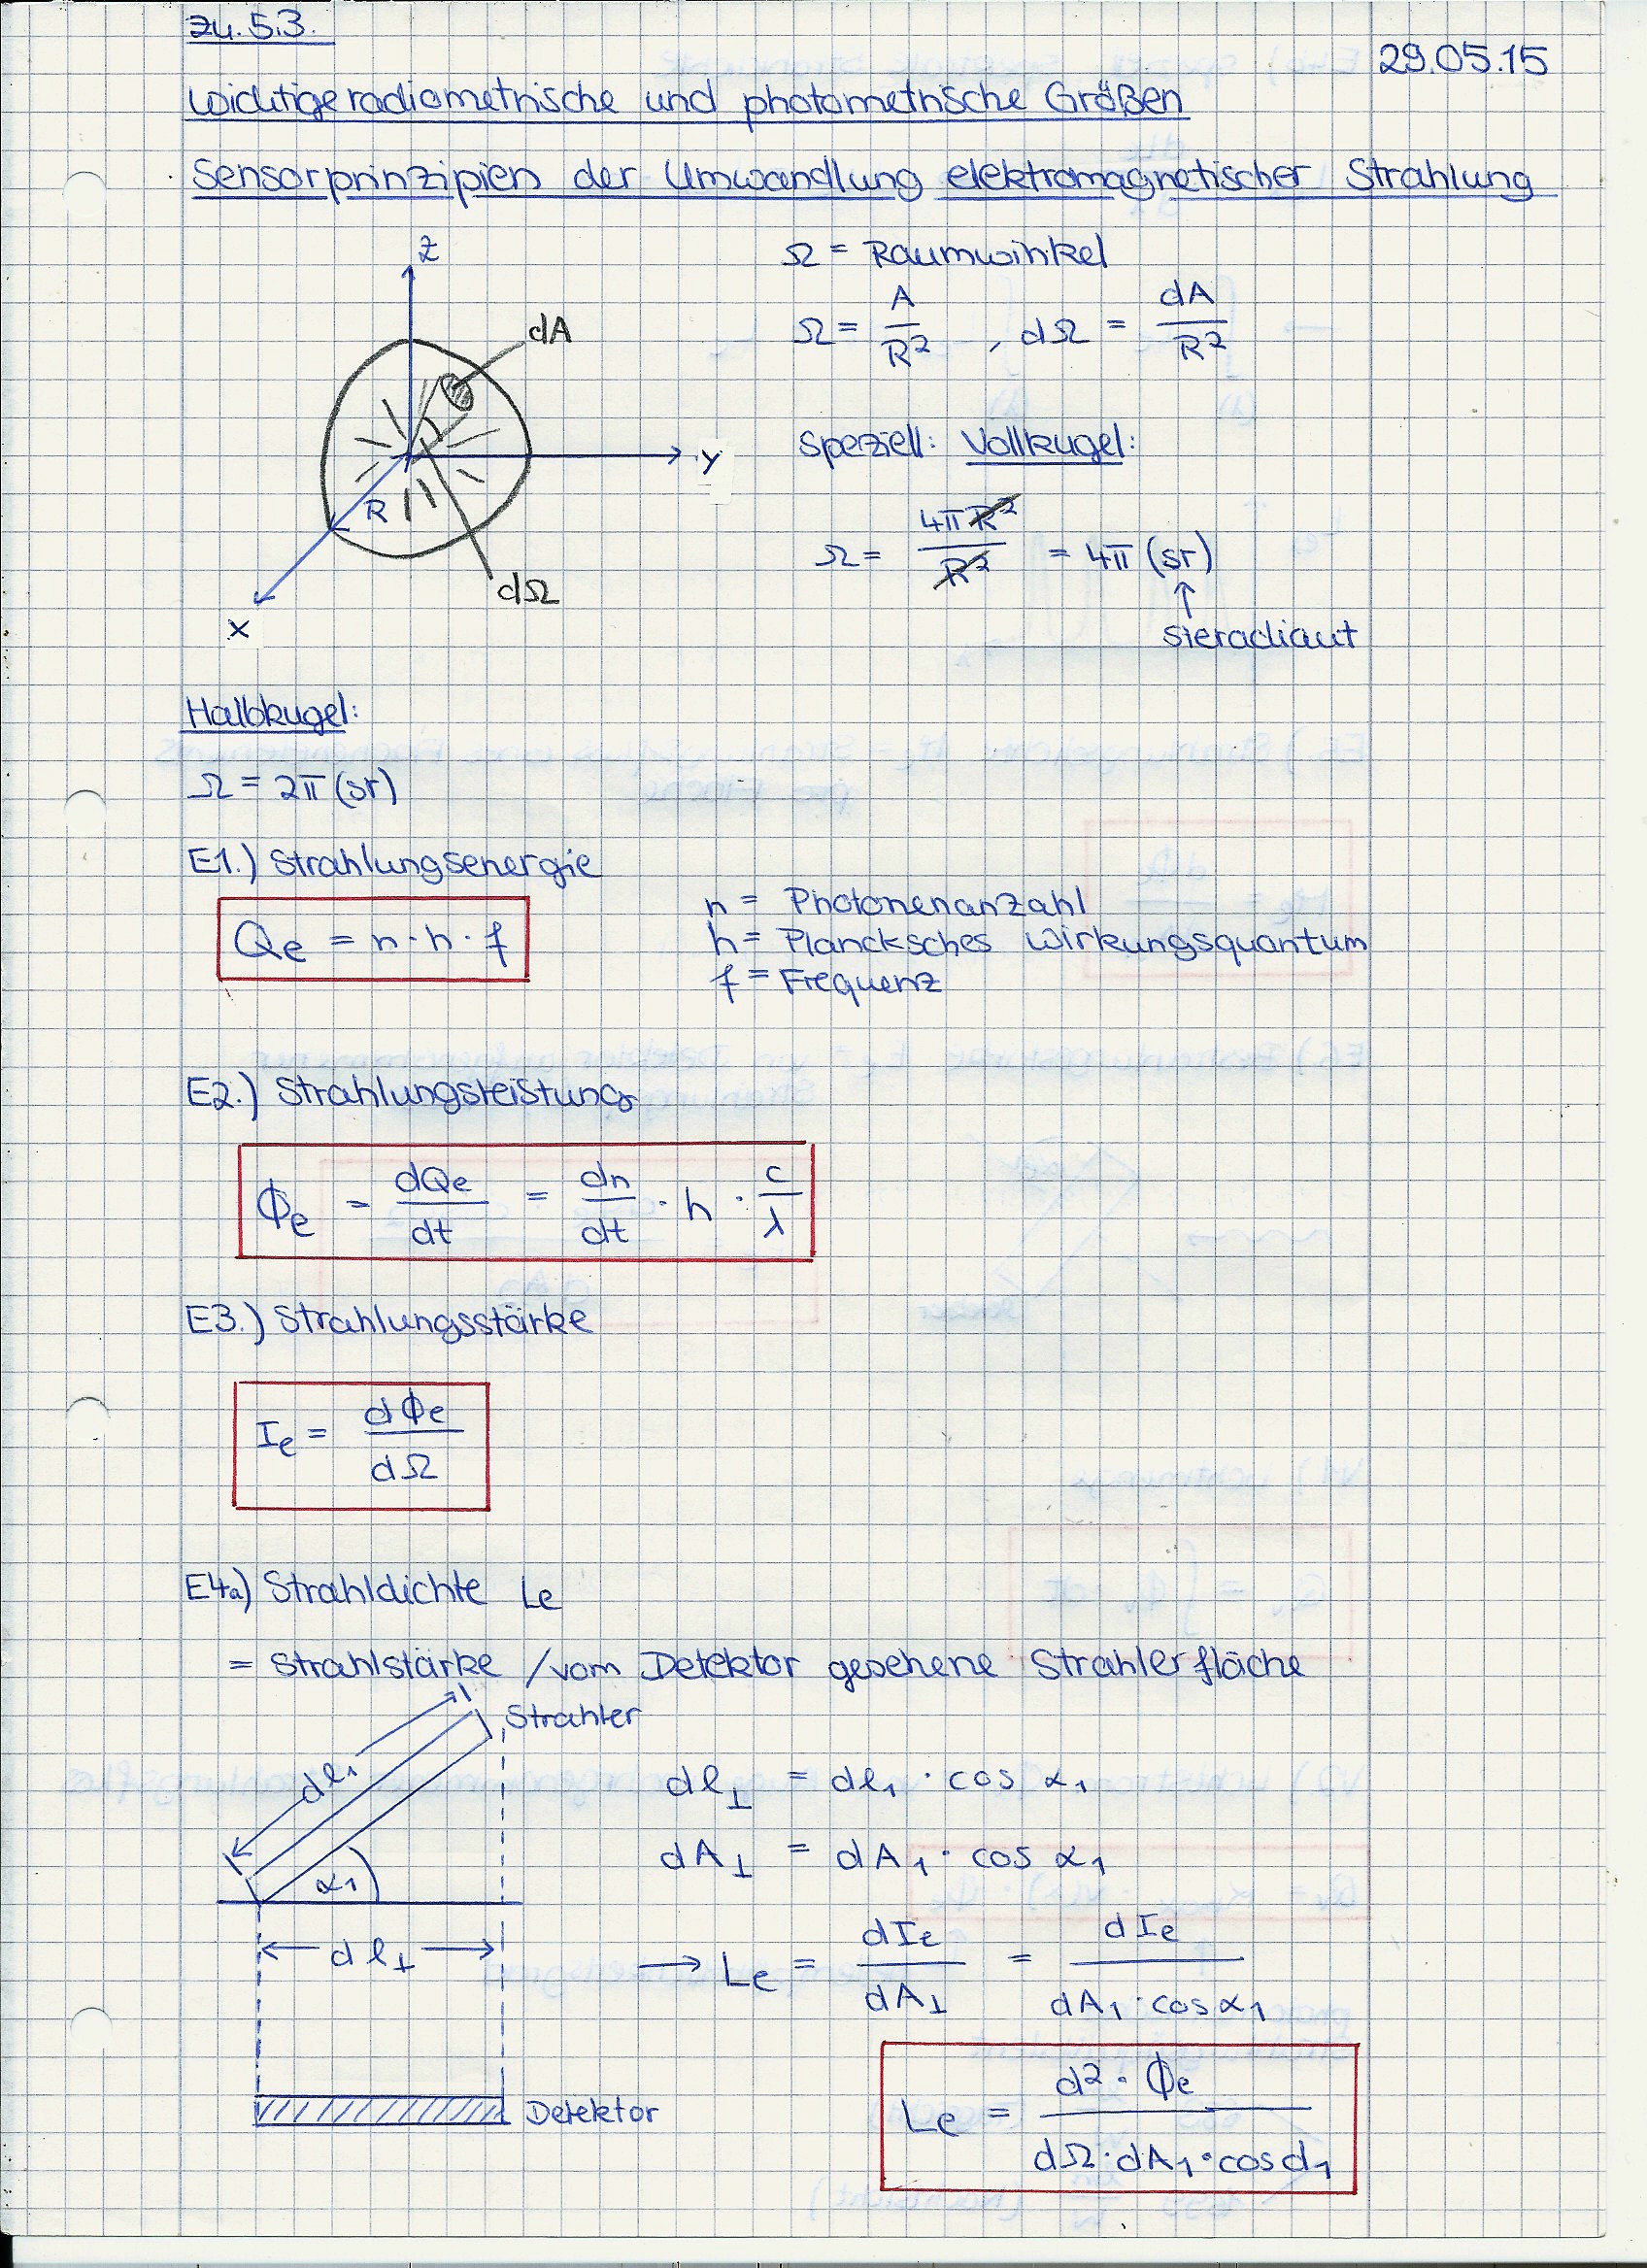 zu. 5.3.
29.05.15
Wichtige radiometrische und photometrische Größen
Sensorprinzipien der Umwandlung elektromagnetischer Strahlung
z
dA
y
R
dΩ
x
Ω = Raumwinkel
Ω = A/R² , dΩ = dA/R²
Speziell: Vollkugel:
Ω = 4πR²/R² = 4π (sr)
↑
steradiant
Halbkugel:
Ω = 2π (sr)
E1.) Strahlungsenergie
Qe = n · h · f
n = Photonenanzahl
h = Plancksches Wirkungsquantum
f = Frequenz
E2.) Strahlungsleistung
ϕe = dQe/dt = dn/dt · h · c/λ
E3.) Strahlungsstärke
Ie = dϕe/dΩ
E4a) Strahldichte Le
= Strahlstärke / vom Detektor gesehene Strahlerfläche
Strahler
dl₁
α₁
dl⊥
Detektor
dl⊥ = dl₁ · cos α₁
dA⊥ = dA₁ · cos α₁
→ Le = dIe/dA⊥ = dIe/dA₁ · cos α₁
Le = d² · ϕe/dΩ · dA₁ · cos α₁